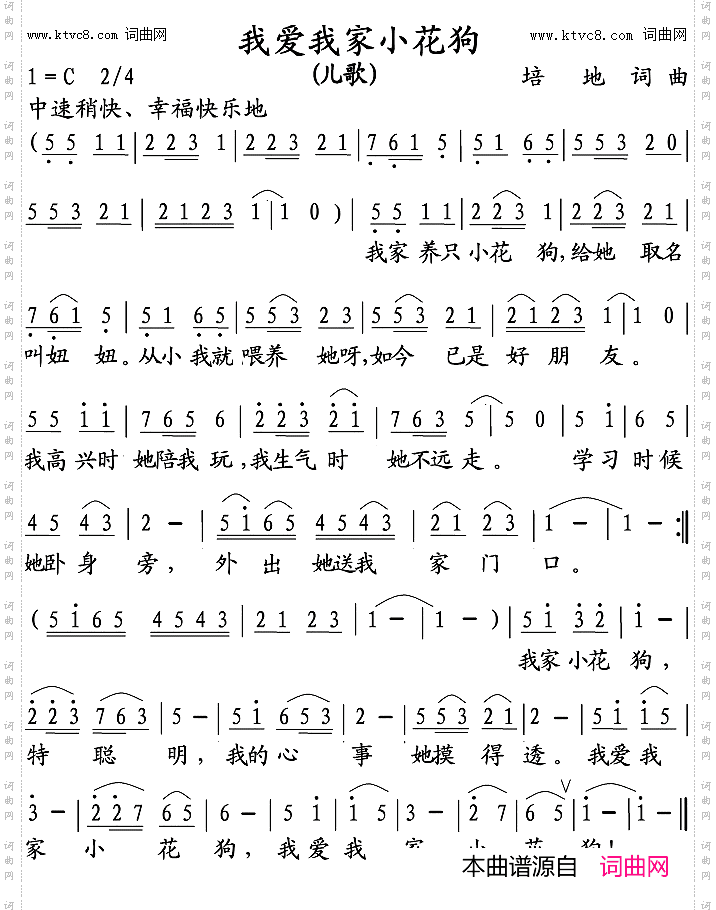 www.ktvc8.com 词曲网 我爱我家小花狗 www.ktvc8.com 词曲网
1=C 2/4 (儿歌) 培 地 词 曲
中速稍快、幸福快乐地
(5 5 1 1 | 2 2 3 1 | 2 2 3 2 1 | 7 6 1 5 | 5 1 6 5 | 5 5 3 2 0 |
5 5 3 2 1 | 2 1 2 3 1 | 1 0 ) | 5 5 1 1 | 2 2 3 1 | 2 2 3 2 1 |
我家 养只 小花 狗,给她 取名
7 6 1 5 | 5 1 6 5 | 5 5 3 2 3 | 5 5 3 2 1 | 2 1 2 3 1 | 1 0 |
叫妞 妞。从小 我就 喂养 她呀,如今 已是 好 朋 友 。
5 5 1 1 | 7 6 5 6 | 2 2 3 2 1 | 7 6 3 5 | 5 0 | 5 1 | 6 5 |
我高 兴时 她陪我 玩,我生气 时 她不远 走 。 学 习 时 候
4 5 4 3 | 2 – | 5 1 6 5 4 5 4 3 | 2 1 2 3 | 1 – | 1 – :||
她卧 身 旁, 外 出 她送我 家 门 口 。
( 5 1 6 5 4 5 4 3 | 2 1 2 3 | 1 – | 1 – ) | 5 1 3 2 | 1 – |
我家 小花 狗,
2 2 3 7 6 3 | 5 – | 5 1 6 5 3 | 2 – | 5 5 3 2 1 | 2 – | 5 1 | 1 5 |
特 聪 明,我的 心 事 她摸 得 透。我 爱 我
3 – | 2 2 7 6 5 | 6 – | 5 1 | 1 5 | 3 – | 2 7 | 6 5 | 1 – | 1 – ||
家 小 花 狗,我 爱 我 家 小 花 狗!
本曲谱源自 词曲网